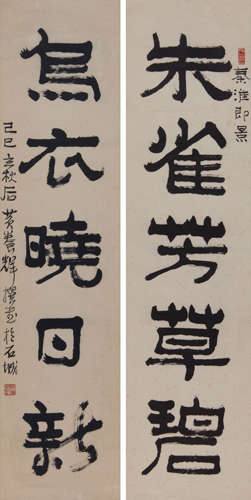 秦淮即景
朱雀芳草碧
烏衣曉日新
己巳立秋后黄养辉撰書於石城